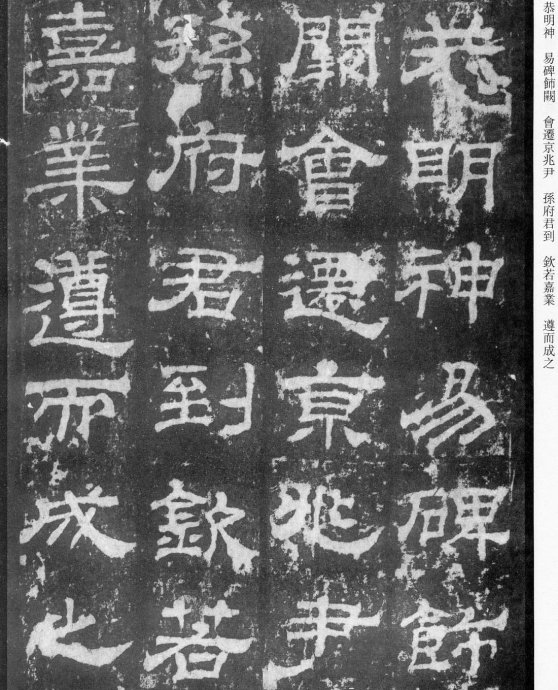 恭明神　易碑飾闕　會遷京兆尹　孫府君到　欽若嘉業　遵而成之
恭明神易碑飾
闕會遷京兆尹
孫府君到欽若
嘉業遵而成之